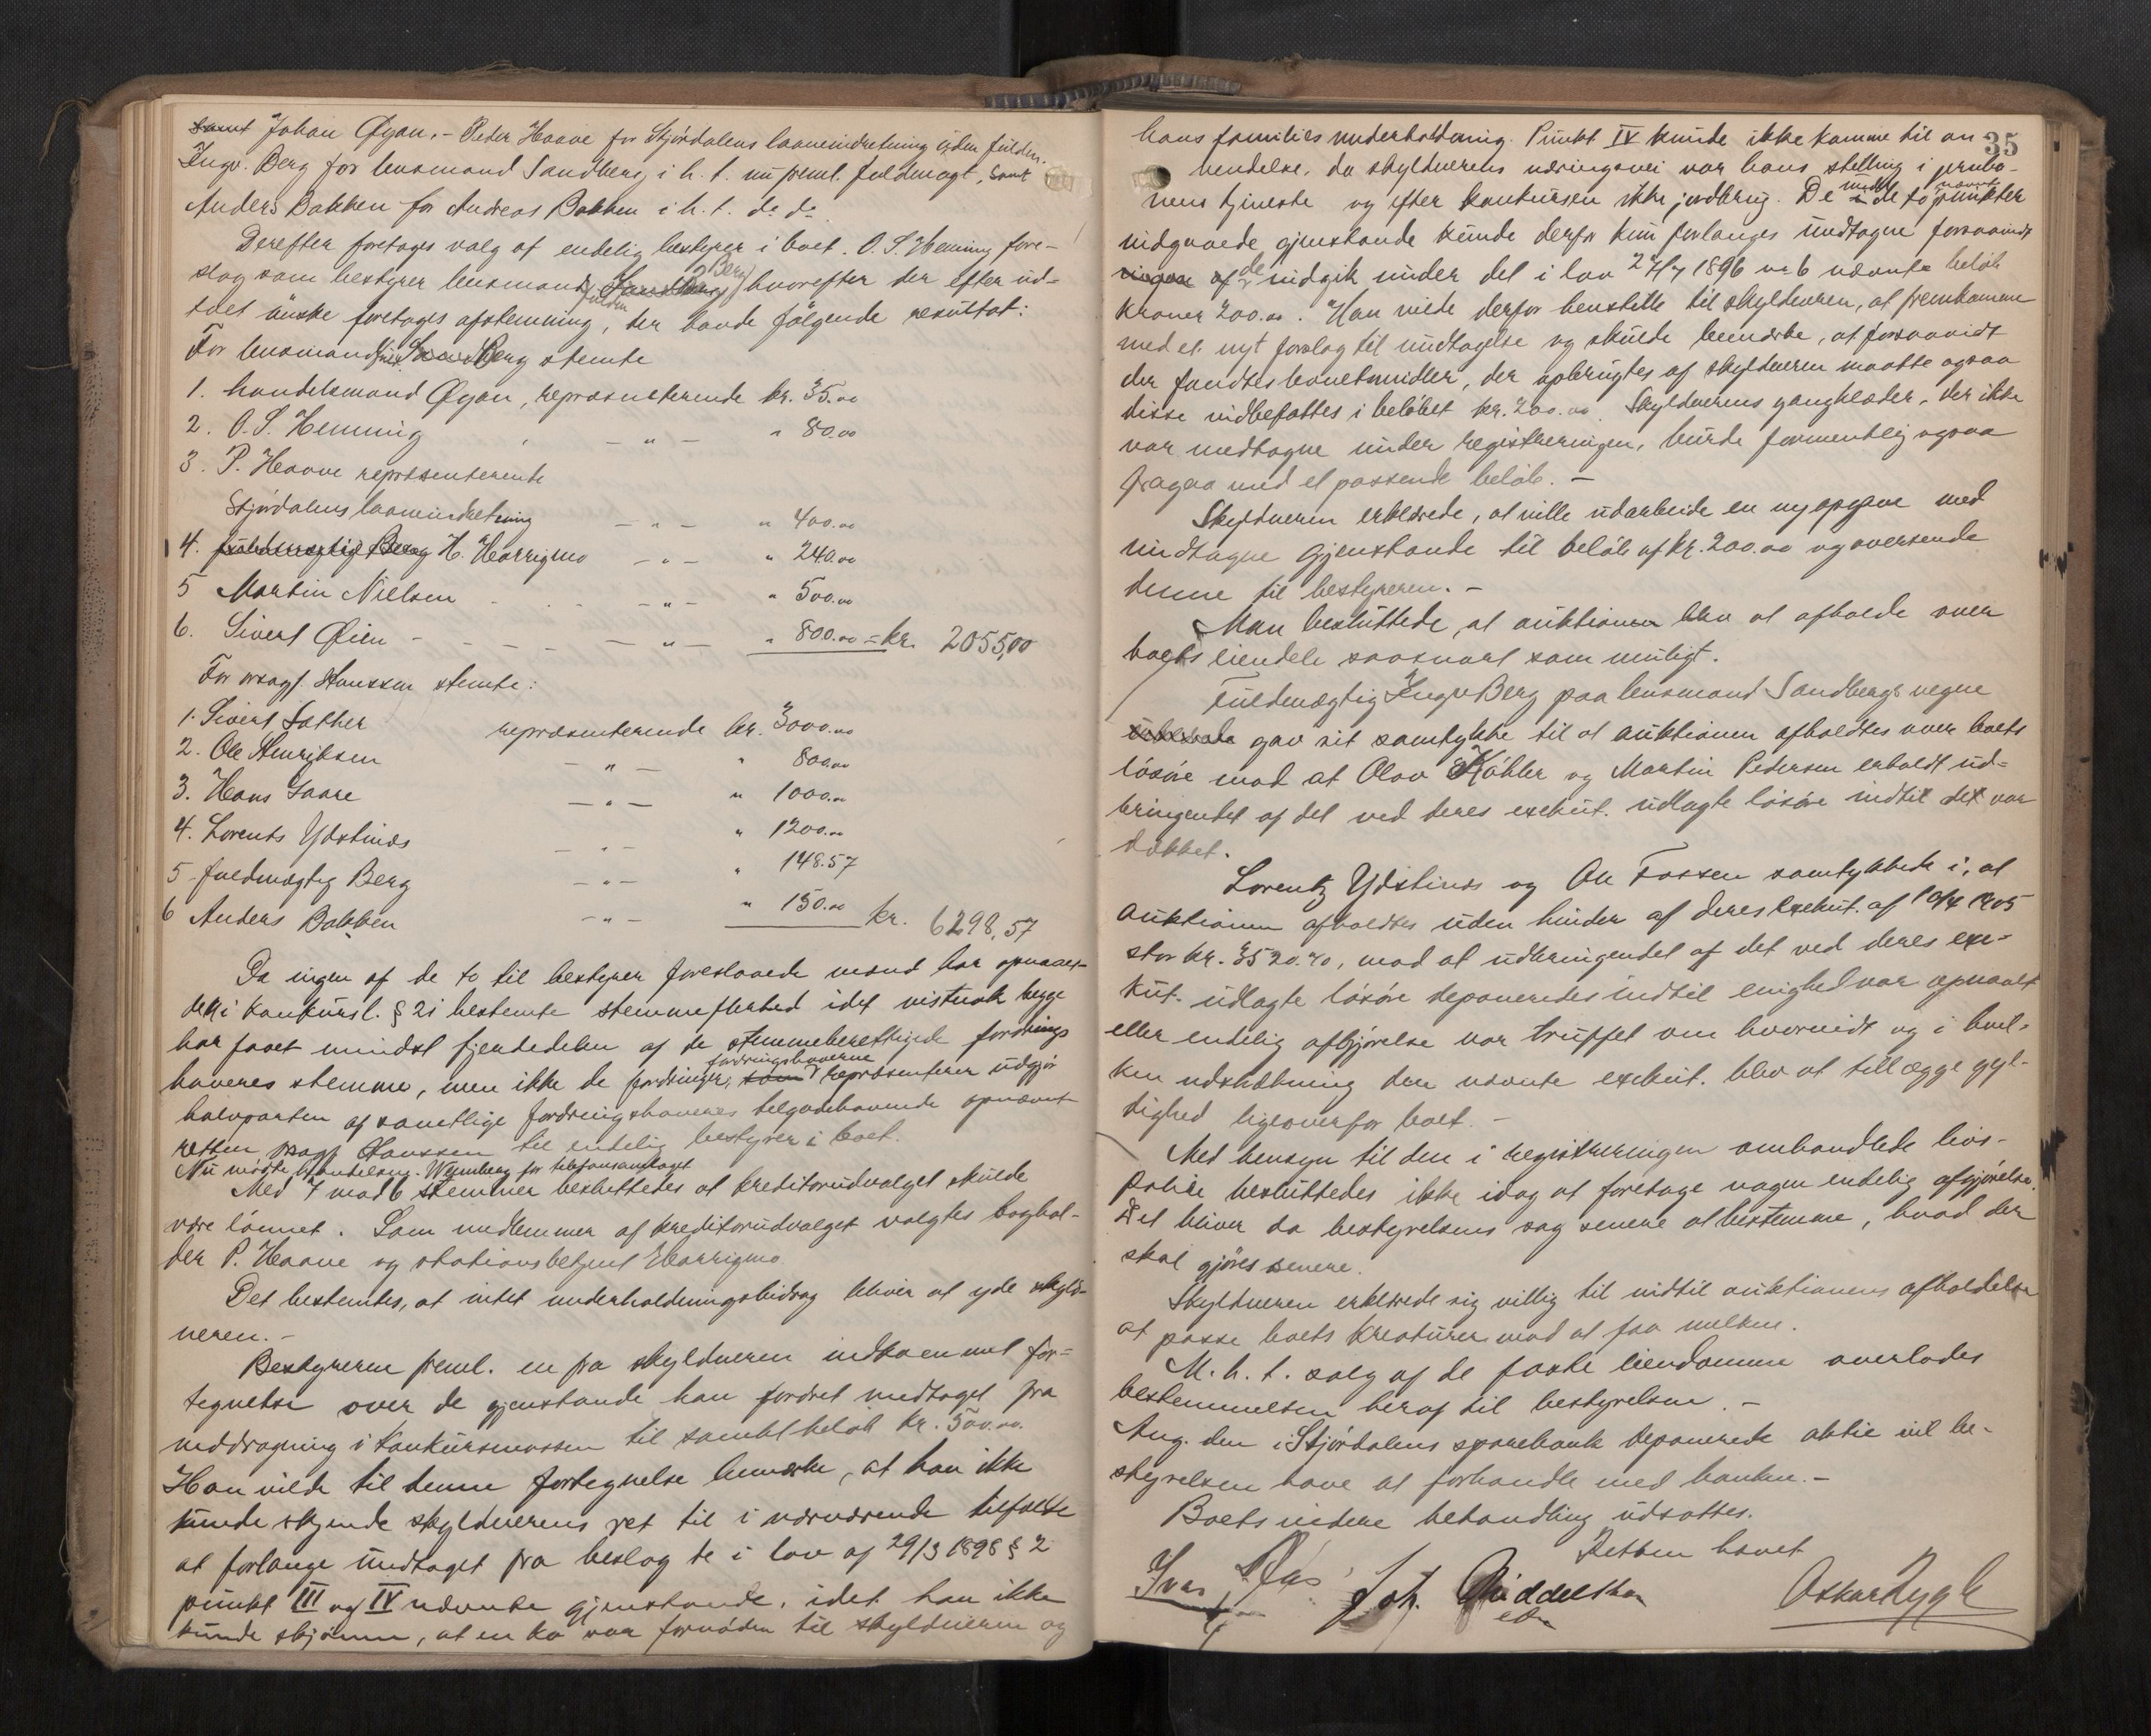 Johan Øyan. – Peder Haave for Stjørdalens laaneindretning uden fuldm.
Ingv. Berg for lensmand Sandberg i h. t. nu freml. fuldmagt, samt
Anders Bakken for Andreas Bakken i h. t. do do
Derefter foretages valg af endelig bestyrer i boet. O. S. Hemming fore-
slog som bestyrer lensmands fuldm Berg hvorefter der efter ud-
talt ønske foretages afstemning, der havde følgende resultat:
For lensmandsfm. Berg stemte
1. handelsmand Øyan, repræsenterende kr. 35.00
2. O. S. Hemming – " – " 80.00
3. P. Haave repræsenterende
Stjørdalens laaneindretning – " – " 400.00
4. fuldmægtig Berg H. Harrigmo – " – " 240.00
5 Martin Nielsen – " – " 500.00
6. Sivert Øien – " – " 800.00 = kr. 2055,00
For orsagf. Hanssen stemte:
1. Sivert Sather repræsenterende kr. 3000.00
2. Ole Henriksen – " – " 800.00
3. Hans Saare – " – " 1000.00
4. Lorents Ydstinds – " – " 1200.00
5 fuldmægtig Berg – " – " 148.57
6 Anders Bakken – " – " 150.00 kr. 6298,57
Da ingen af de to til bestyrer foreslaaede mænd har opnaaet
den i konkursl. § 21 bestemte stemmeflerhed idet vistnok begge
har faaet mindst fjerdedelen af de stemmeberettigede fordrings
haveres stemme, men ikke de fordringer, som fordringshaverne repræsenterer udgjør
halvparten af samtlige fordringshaveres tilgodehavende opnævnte
retten orsagf Hanssen til endelig bestyrer i boet.
Nu mødte Handelsmg. Wennberg for telefonanlæget
Med 7 mod 6 stemmer besluttedes at kreditorudvalget skulde
være lønnet. Som medlemmer af kreditorudvalget valgtes boghol-
der P. Haave og stationsbetjent Harrigmo
Det bestemtes, at intet underholdningsbidrag bliver at yde skyld-
neren. –
Bestyreren freml. en fra skyldneren indkommet for-
tegnelse over de gjenstande han fordret undtaget fra
inddragning i konkursmassen til samlet beløb kr. 500.00.
Han vilde til denne fortegnelse bemærke, at han ikke
kunde skjønde skyldnerens ret til i nærværende tilfælde
at forlange undtaget fra beslag de i lov af 29/3 1898 § 2
punkt III og IV nævnte gjenstande, idet han ikke
kunde skjønne, at en ko var fornøden til skyldneren og
35
hans families underholdning. Punkt IV kunde ikke komme til an
vendelse, da skyldnerens næringsvei var hans stilling i jernba-
nens tjeneste og efter konkursen ikke jordbrug. De under de to nævnte punkter
indgaaede gjenstande kunde derfor kun forlanges undtagne forsaavidt
de indgik under det i lov 27/7 1896 nr 6 nævnte beløb
kroner 200.00. Han vilde derfor henstille til skyldneren, at fremkomme
med et nyt forslag til undtagelse og skulde bemærke, at forsaavidt
der fandtes levnetsmidler, der opbrugtes af skyldneren maatte ogsaa
disse indbefattes i beløbet kr. 200.00. Skyldnerens gangklæder, der ikke
var medtagne under registreringen, burde formentlig ogsaa
fragaa med et passende beløb. –
Skyldneren erklærede, at ville udarbeide en ny opgave med
undtagne gjenstande til beløb af kr. 200.00 og oversende
denne til bestyreren. –
Man besluttede, at auktionen blev at afholde over
boets eiendele saasnart som muligt.
Fuldmægtig Ingv Berg paa lensmand Sandbergs vegne
gav sit samtykke til at auktionen afholdtes over boets
løsøre mod at Olav Köhler og Martin Pedersen erholdt ud-
bringendet af det ved deres exekut. udlagte løsøre indtil det var
dækket.
Lorentz Ydstinds og Ole Fossen samtykkede i, at
auktionen afholdtes uden hinder af deres exekut. af 10/4 1905
stor kr. 3520.70, mod at udbringendet af det ved deres exe-
kut. udlagte løsøre deponeredes indtil enighed var opnaaet
eller endelig afgjørelse var truffet om hvorvidt og i hvil-
ken udstrækning den nævnte exekut. blev at tillægge gyl-
dighed ligeoverfor boet. –
Med hensyn til den i registreringen omhandlede livs-
police besluttedes ikke idag at foretage nogen endelig afgjørelse.
Det bliver da bestyrelsens sag senere at bestemme, hvad der
skal gjøres senere.
Skyldneren erklærede sig villig til indtil auktionens afholdelse
at passe boets kreaturer mod at faa melken.
M. h. t. salg af de faste eiendomme overlodes
bestemmelsen heraf til bestyrelsen. –
Ang. den i Stjørdalens sparebank deponerede aktie vil be-
styrelsen have at forhandle med banken. –
Boets videre behandling udsattes.
Retten hævet
Joh. Middelthon
Oskar Rygh